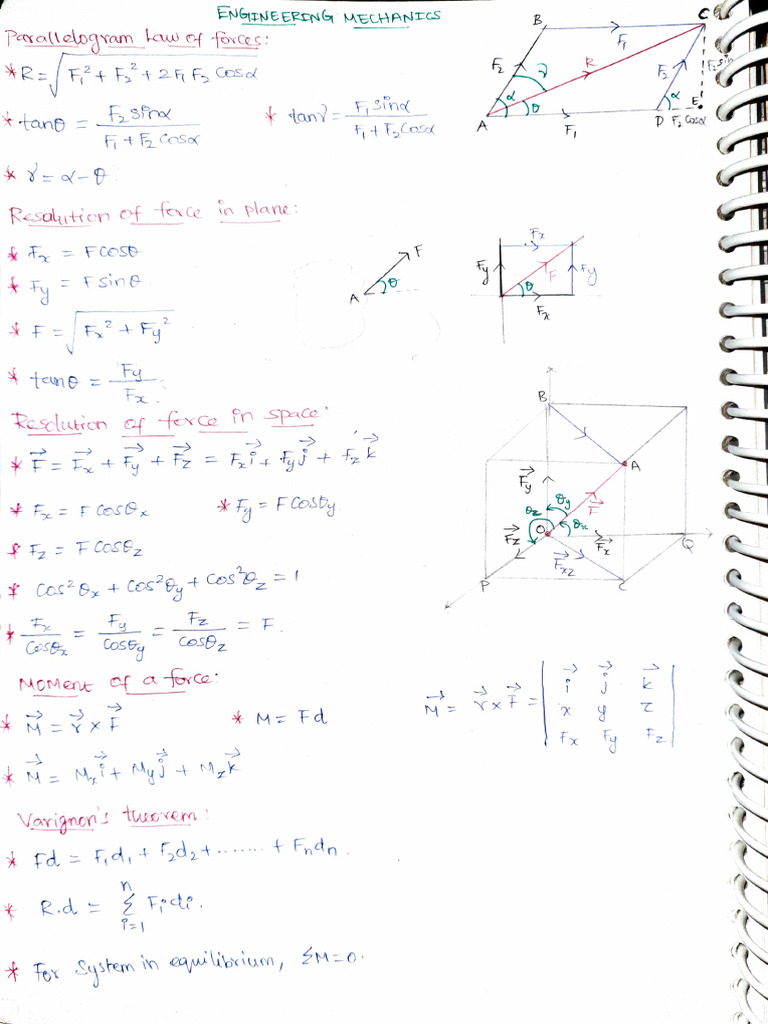 ENGINEERING MECHANICS
Parallelogram Law of forces:
* R = √(F₁² + F₂² + 2F₁F₂ Cosα)
* tanθ = F₂ sinα / (F₁ + F₂ Cosα)
* tanγ = F₁ sinα / (F₁ + F₂ Cosα)
* γ = α - θ
B C F₁ F₂ γ R F₂ F₂ sin α θ α A F₁ D F₂ Cosα E
Resolution of force in plane:
* Fx = F Cosθ
* Fy = F sinθ
* F = √(Fx² + Fy²)
* tanθ = Fy / Fx.
A θ F
Fx Fy F Fy θ Fx
Resolution of force in space:
* F⃗ = F⃗x + F⃗y + F⃗z = Fx i⃗ + Fy j⃗ + fz k⃗
* Fx = F Cosθx * Fy = F Cosθy
* Fz = F Cosθz
* Cos²θx + Cos²θy + Cos²θz = 1
* Fx / Cosθx = Fy / Cosθy = Fz / Cosθz = F.
B A F⃗y θy θz F⃗ θx O F⃗z F⃗x Q F⃗xz P C
Moment of a force:
* M⃗ = r⃗ × F⃗ * M = Fd
M⃗ = r⃗ × F⃗ = | i⃗ j⃗ k⃗ |
| x y z |
| Fx Fy Fz |
* M⃗ = Mx i⃗ + My j⃗ + Mz k⃗
Varignon's theorem:
* Fd = F₁d₁ + F₂d₂ + ....... + Fndn.
* R.d = Σ(i=1 to n) Fidi.
* For System in equilibrium, ΣM=0.